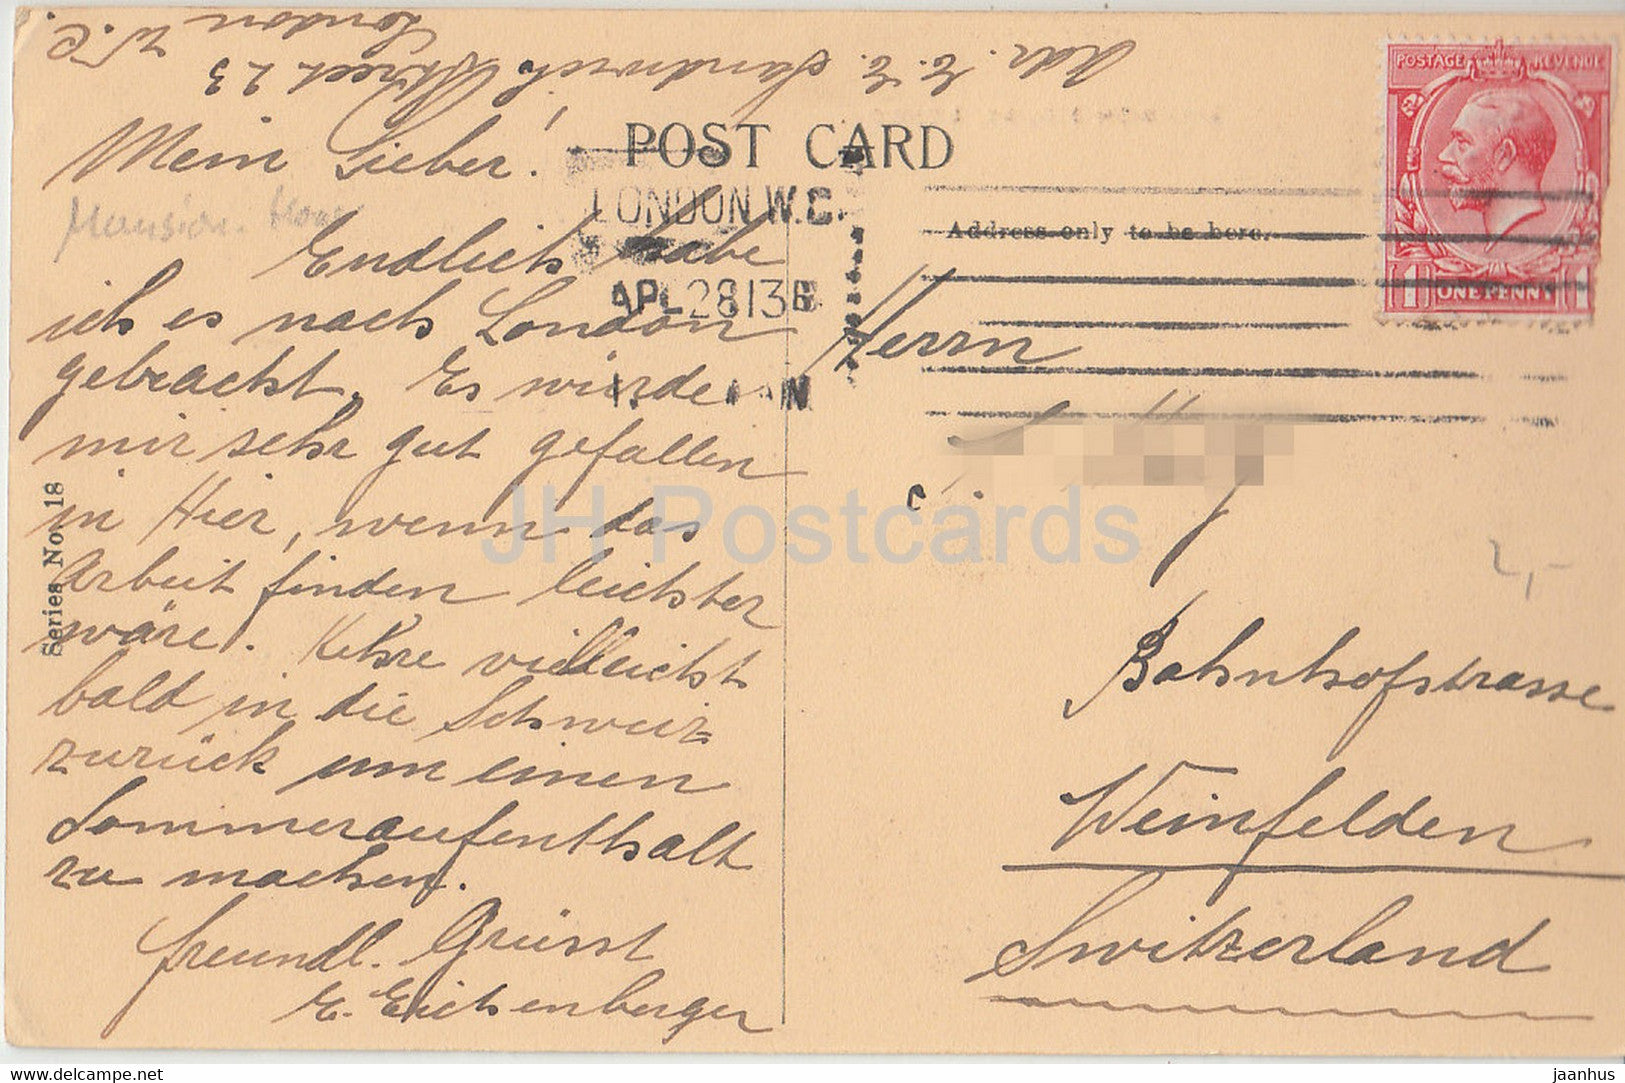 Adr. E. E. Sandwich Street 23
London W. C.
Mein Lieber!
Mansion
Endlich habe
ich es nach London
gebracht. Es würde
mir sehr gut gefallen
in Hier, wenn das
Arbeit finden leichter
wäre. Kehre vielleicht
bald in die Schweiz
zurück um einen
Sommeraufenthalt
zu machen.
freundl. Grüsst
E. Eichenberger
Series No. 18
POST CARD
LONDON W.C.
APL 28 13
Address only to be here.
POSTAGE REVENUE
1 ONE PENNY 1
Herrn
Bahnhofstrasse
Weinfelden
Switzerland
2,-
JH Postcards
https://www.delcampe.net
jaanhus